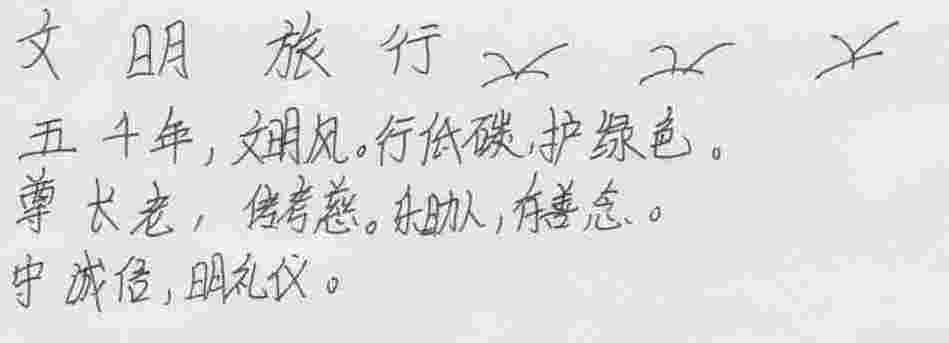 文明旅行
五千年,文明风。行低碳,护绿色。
尊长老,信孝慈。乐助人,存善念。
守诚信,明礼仪。